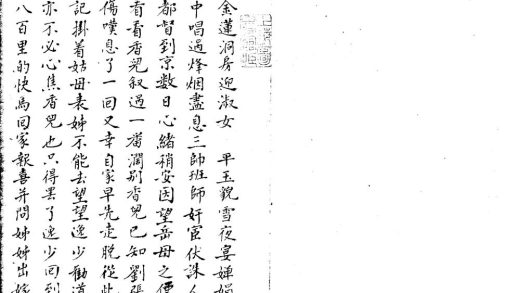 金蓮洞房迎淑女　平玉貌雪夜宴嬋娟
中唱過烽烟盡息三帥班師奸宦伏誅
都督到京数日心緒稍安因望岳母之便
看看香児叙過一番濶别香児已知劉張
傷嘆息了一回又幸自家早先走脫從此
記掛着姑母表姊不能去望望逸少勸道
亦不必心焦香児也只得罢了逸少回到
八百里的快馬回家報喜并問姊姊出嫁